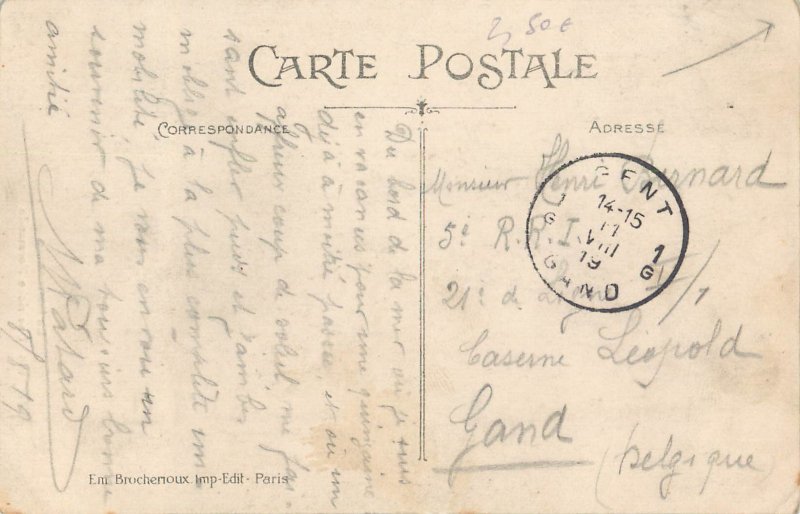 2,50€
CARTE POSTALE
CORRESPONDANCE
ADRESSE
Du bord de la mer où je suis
en vacances pour une quinzaine
déjà à moitié passée, et où un
affreux coup de soleil me fai-
sant enfler pieds et jambes
m'oblige à la plus complète im-
mobilité, je vous envoie un
souvenir de ma toujours bonne
amitié
8/8/19
Monsieur Henri Bernard
5e R.R.I.
21e de Ligne II/7
Caserne Léopold
Gand
(Belgique)
GENT 1
14-15
11
VIII
19
1G GAND 1G
Em. Brocherioux. Imp-Edit- Paris